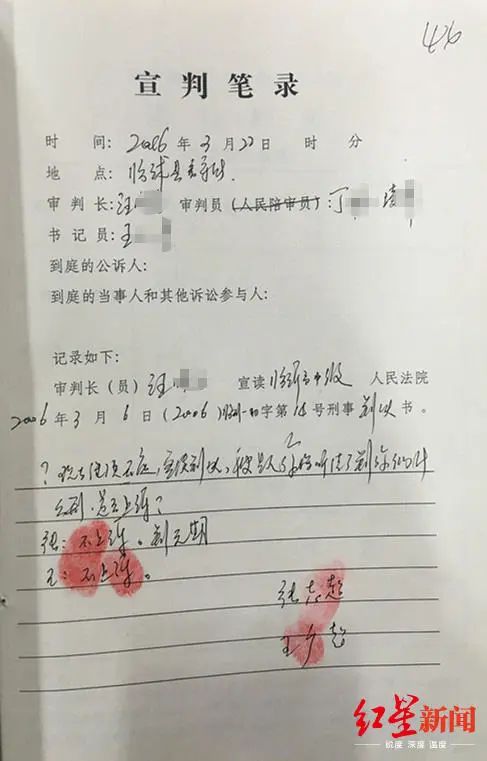 426
宣判笔录
时 间: 2006 年 3 月 22 日 时 分
地 点: 临沭县看守所
审 判 长: 汪 审判员 (人民陪审员): 丁
书 记 员: 王
到庭的公诉人:
到庭的当事人和其他诉讼参与人:
记录如下:
审判长 (员) 汪 宣读 临沂市中级 人民法院
2006 年 3 月 6 日 (2006) 临刑一初字第 号刑事 判决 书。
? 现在 宣读判决, 听清了
刑. 是否上诉?
张: 不上诉。判无期
王: 不上诉。
张志超
王广超
红星新闻
锐度 深度 温度